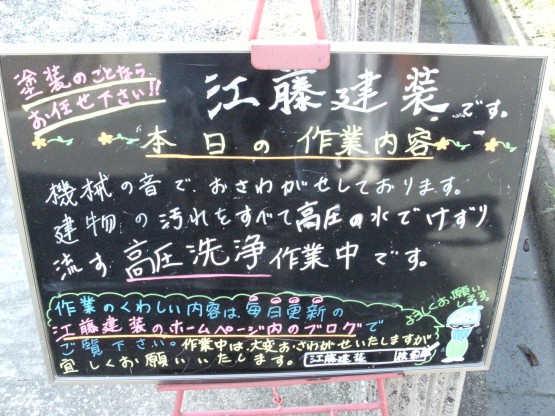 塗装のことなら
お任せ下さい!!
江藤建装です。
本日の作業内容
機械の音で、おさわがせしております。
建物の汚れをすべて高圧の水でけずり
流す高圧洗浄作業中です。
よろしくお願い
します
作業のくわしい内容は、毎日更新の
江藤建装のホームページ内のブログで
ご覧下さい。作業中は、大変おさわがせいたしますが
宜しくお願いいたします。江藤建装 検索